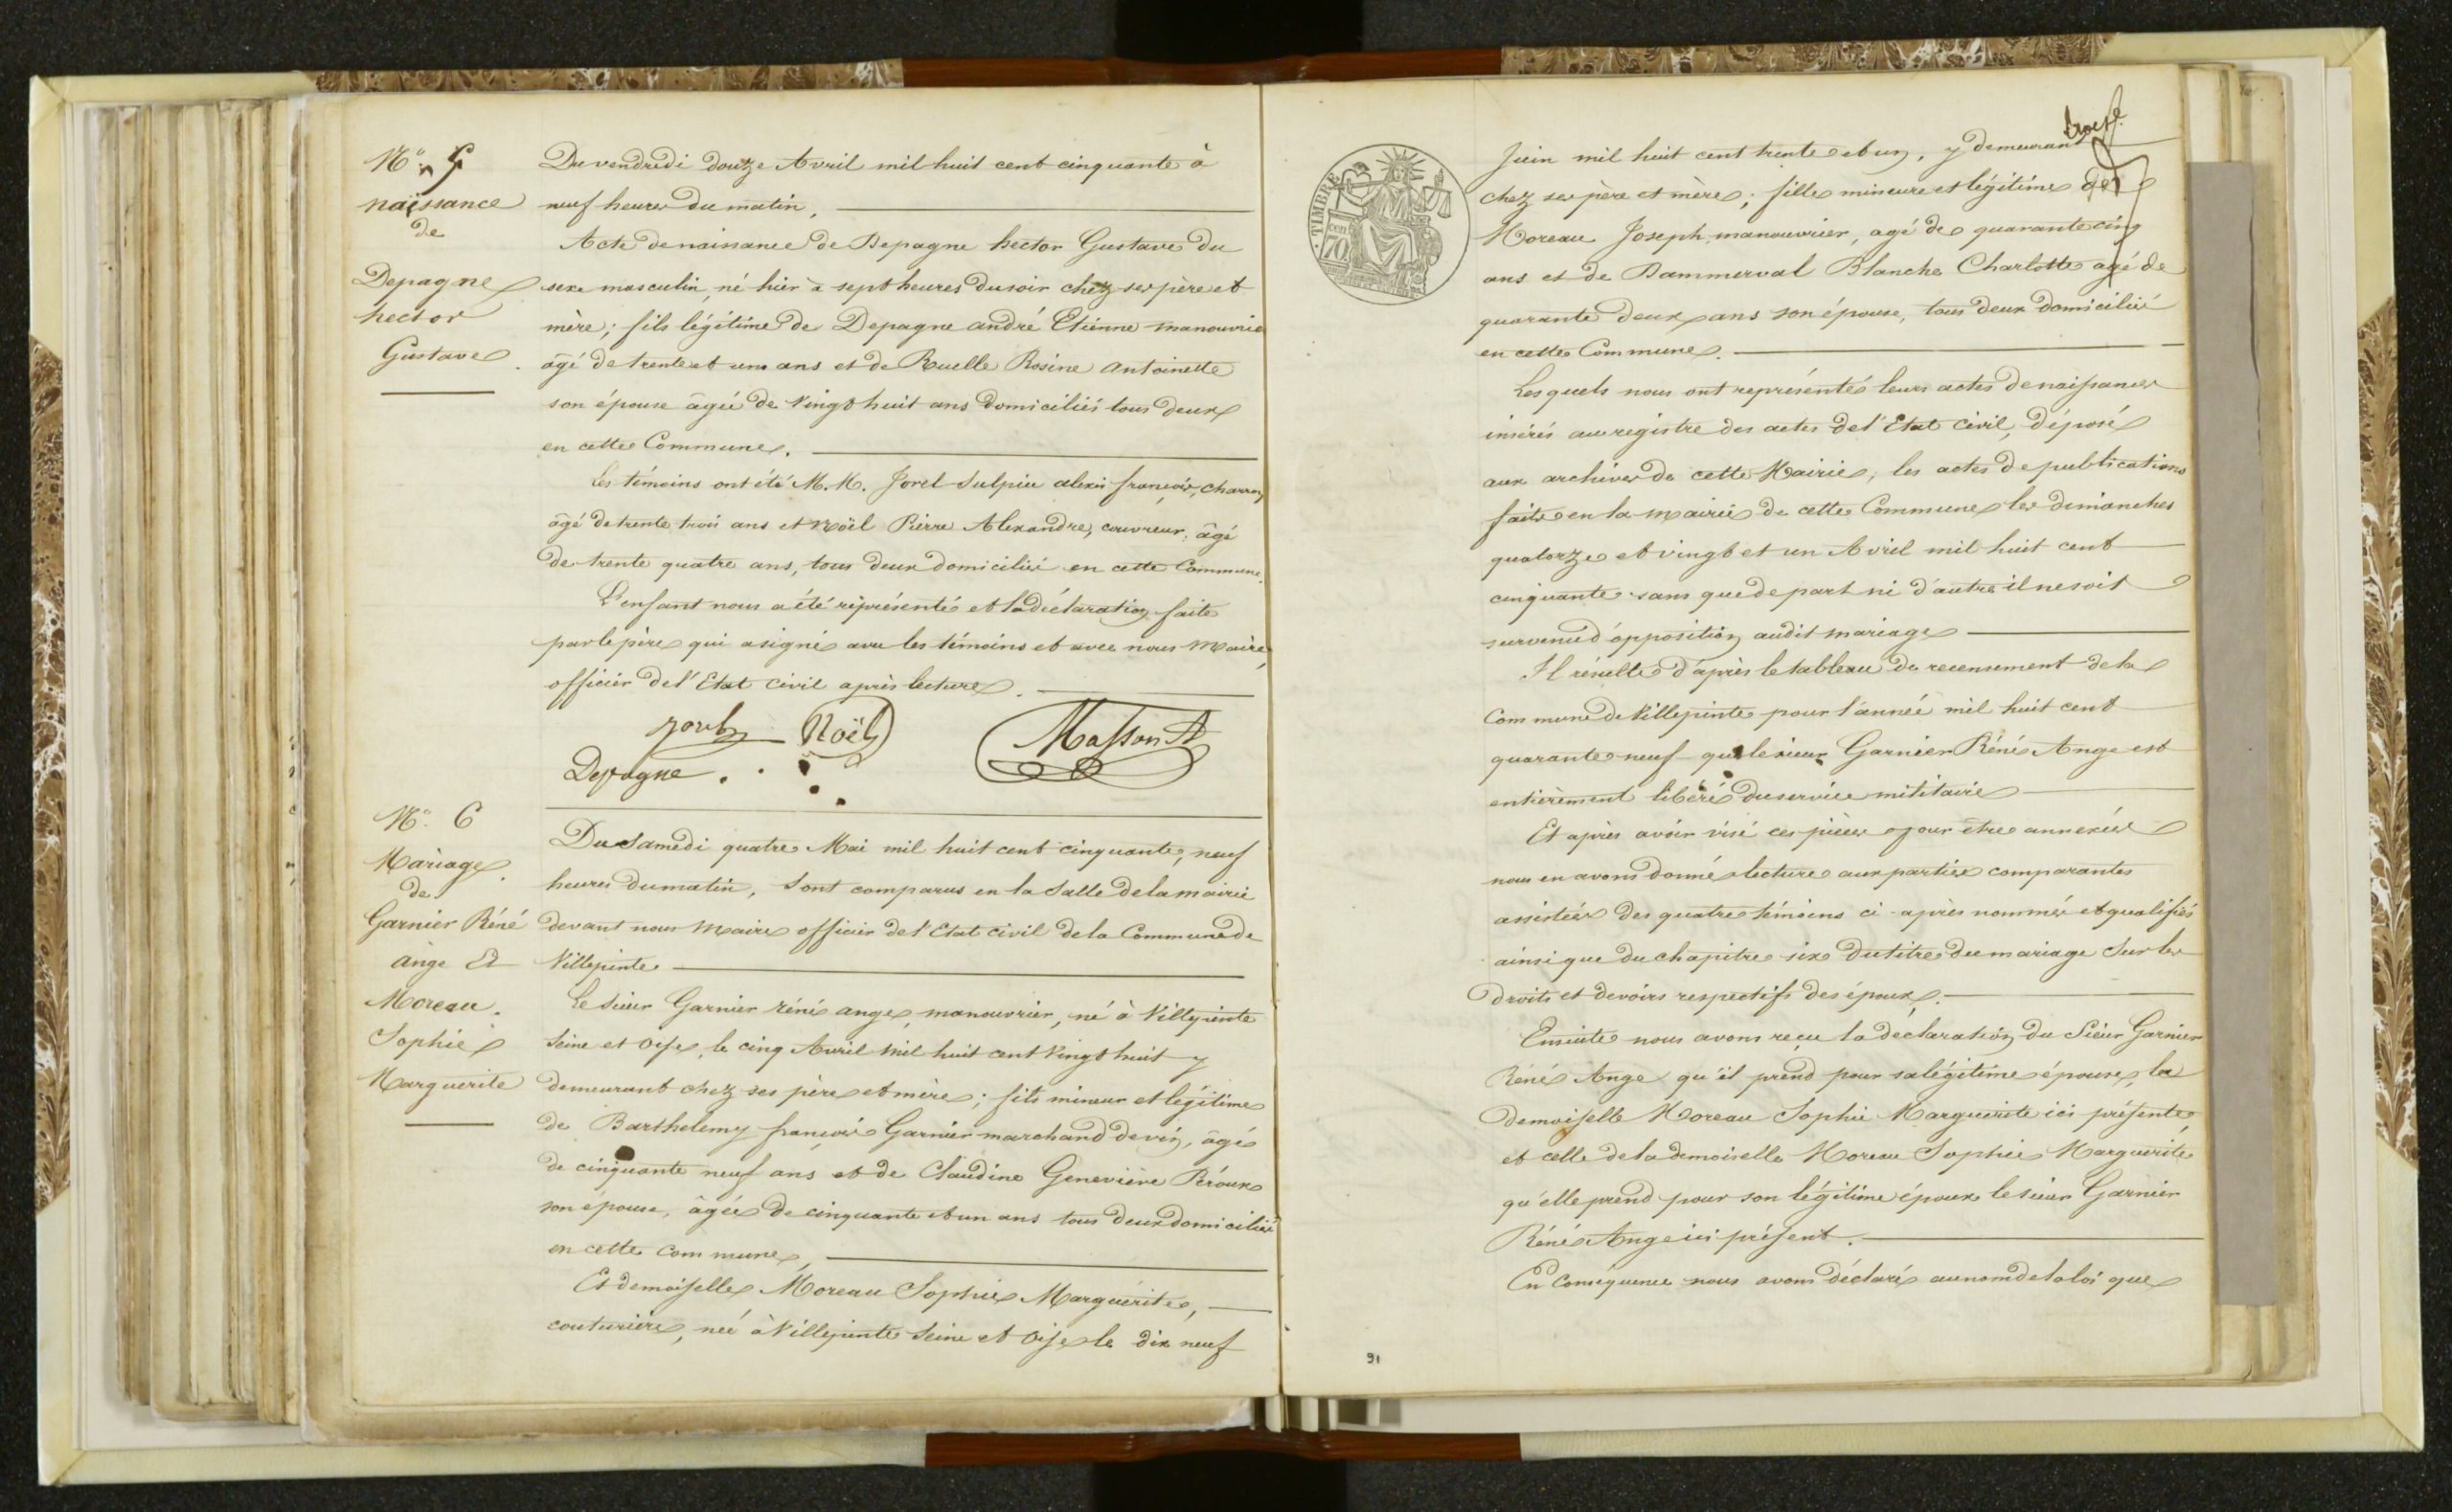 N° 5
naissance
de
Depagne
hector
Gustave.
Du vendredi douze Avril mil huit cent cinquante à
neuf heures du matin,
Acte de naissance de Depagne hector Gustave du
sexe masculin, né hier à sept heures du soir chez ses père et
mère; fils légitime de Depagne andré Etienne manouvrier
âgé de trente et un ans et de Ruelle Rosine antoinette
son épouse âgée de vingt huit ans domiciliés tous deux
en cette Commune.
Les témoins ont été M.M. Jorel Sulpice alexis françois, charron
âgé de trente trois ans et Noël Pierre Alexandre, couvreur, âgé
de trente quatre ans, tous deux domiciliés en cette Commune.
L'enfant nous a été réprésenté et la déclaration faite
par le père qui a signé avec les témoins et avec nous Maire,
officier de l'Etat civil après lecture.
Noël Masson A
Depagne
N° 6
Mariage
de
Garnier Réné
ange Et
Moreau
Sophie
Marguerite
Du Samedi quatre Mai mil huit cent cinquante, neuf
heures du matin, Sont comparus en la Salle de la mairie
devant nous Maire officier de l'Etat civil de la Commune de
Villepinte
Le Sieur Garnier réné ange, manouvrier, né à Villepinte
Seine et Oise, le cinq Avril mil huit cent vingt huit y
demeurant chez ses père et mère; fils mineur et légitime
de Barthelemy françois Garnier marchand de vin, âgé
de cinquante neuf ans et de Claudine Geneviève Péroux
son épouse, âgée de cinquante et un ans tous deux domiciliés
en cette commune,
Et demoiselle Moreau Sophie Marguérite,
couturière, née à Villepinte Seine et Oise le dix neuf
Juin mil huit cent trente et un, y demeurant
chez ses père et mère; fille mineure et légitime de
Moreau Joseph, manouvrier, agé de quarante cinq
ans et de Dammerval Blanche Charlotte agé de
quarante deux ans son épouse, tous deux domiciliés
en cette Commune.
Lesquels nous ont représentés leurs actes de naissances
insérés au registre des actes de l'Etat Civil, déposé
aux archives de cette Mairie; les actes de publications
faites en la mairie de cette Commune les dimanches
quatorze et vingt et un Avril mil huit cent
cinquante sans que de part ni d'autre il ne soit
survenu d'opposition audit mariage
Il résulte d'après le tableau du recensement de la
Commune de Villepinte pour l'année mil huit cent
quarante neuf que le sieur Garnier Réné Ange est
entièrement libéré du service militaire
Et après avoir visé ces pièces pour être annexées
nous en avons donné lecture aux parties comparantes
assistées des quatre témoins ci-après nommés et qualifiés
ainsi que du chapitre six du titre du mariage Sur les
droits et devoirs respectifs des époux.
Ensuite nous avons reçu la déclaration du Sieur Garnier
Réné Ange qu'il prend pour sa légitime épouse, la
demoiselle Moreau Sophie Marguerite ici présente,
et celle de la demoiselle Moreau Sophie Marguérite
qu'elle prend pour son légitime époux le sieur Garnier
Réné Ange ici présent.
En Conséquence nous avons déclaré au nom de la loi que
TIMBRE
70
91